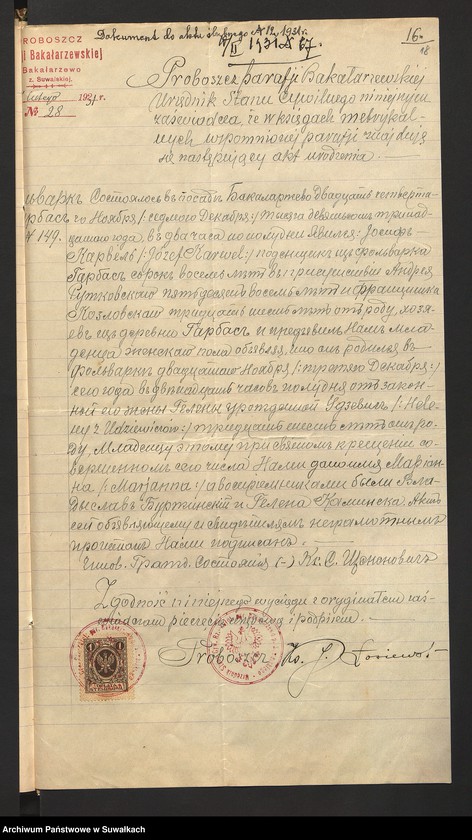 Dokument do aktu ślubnego № 12, 1931 r.
16.
18
PROBOSZCZ
Bakałarzewskiej
Bakałarzewo
z. Suwalskiej.
lutego 1931 r.
№ 28
II 1931 № 67.
Proboszcz parafji Bakałarzewskiej
Urzędnik Stanu Cywilnego niniejszym
zaświadcza, że w księgach metrykal-
nych wspomnianej parafji znajduje
się następujący akt urodzenia.
149.
Состоялось въ посадѣ Бакаларжево двадцать четверта-
го Ноября /:седьмого Декабря:/ тысяча девятьсотъ тринад-
цатаго года въ два часа по полудни. Явился: Іосифъ
Карвель /:Józef Karwel:/ поденщикъ изъ фольварка
Гарбасъ сорокъ восемь лѣтъ въ присутствіи Андрея
Рутковскаго пятьдесятъ восемь лѣтъ и Францишка
Козловскаго тридцать шесть лѣтъ отъ роду, хозя-
евъ изъ деревни Гарбасъ и предъявилъ Намъ мла-
денца женскаго пола объявляя, что онъ родился въ
фольваркѣ двадцатаго Ноября /:третьяго Декабря:/
сего года въ двѣнадцать часовъ полудня отъ закон-
ной его жены Гелены урожденной Удзевичъ /:Hele-
ny z Udziewiczów:/ тридцать шесть лѣтъ отъ ро-
ду. Младенцу этому при святомъ крещеніи со-
вершенномъ сего числа Нами дано имя Маріан-
на /:Marjanna:/ а воспріемниками были Вла-
диславъ Буржинскій и Гелена Каминска. Актъ
сей объявляющему и свидѣтелямъ неграмотнымъ
прочитанъ Нами подписанъ.
Чинов. Гражд. Состоянія (-) Кс. С. Щенсновичъ
Zgodność niniejszego wyciągu z oryginałem zaś-
wiadczam pieczęcią urzędową i podpisem.
Proboszcz Ks. J.
1
Archiwum Państwowe w Suwałkach